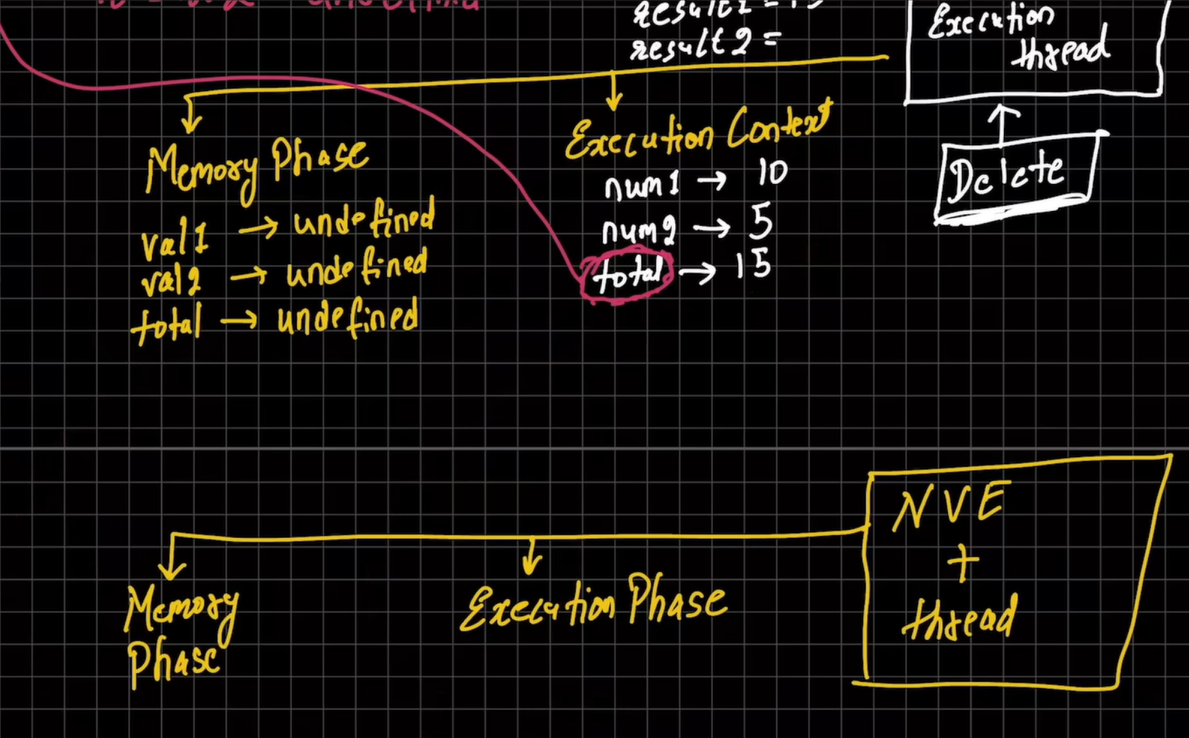 undefined
result1 = 15
result2 =
Execution
thread
Memory Phase
val1 → undefined
val2 → undefined
total → undefined
Execution Context
num1 → 10
num2 → 5
total → 15
Delete
Memory
Phase
Execution Phase
NVE
+
thread